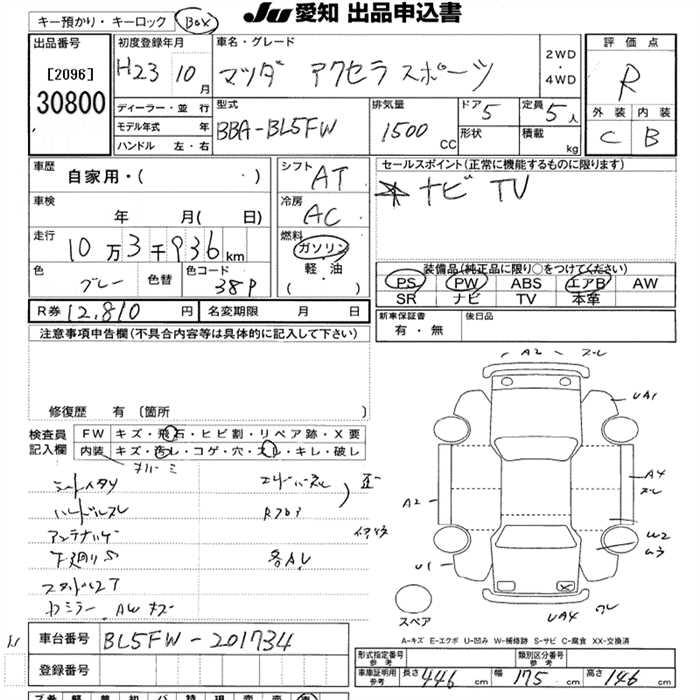 JU 愛知 出品申込書
キー預かり・キーロック BOX
出品番号
[2096]
30800
初度登録年月
H23 10月
車名・グレード
マツダ アクセラスポーツ
2WD
・
4WD
評価点
R
外装 内装
C B
ディーラー・並行
モデル年式 年
ハンドル 左・右
型式
BBA-BL5FW
排気量
1500 CC
ドア 5
形状
定員 5人
積載 kg
車歴
自家用・( ・)
車検
年 月( 日)
走行
10万3千936km
色
グレー
色替
色コード
38P
シフト AT
冷房
AC
燃料
ガソリン
・
軽・油
・( )
セールスポイント(正常に機能するものに限ります)
ナビ TV
装備品(純正品に限り○をつけてください)
PS PW ABS エアB AW
SR ナビ TV 本革
R券 12,810円
名変期限 月 日
新車保証書
有・無
後日品
注意事項申告欄(不具合内容等は具体的に記入して下さい)
修復歴 有〔箇所 〕
検査員
記入欄
FW キズ・飛石・ヒビ割・リペア跡・X要
内装 キズ・汚レ・コゲ・穴・スレ・キレ・破レ
シートヘタリ
ハンドルスレ
下廻りS
各AU
AWキズ
A2 スレ
UA1
A2
A4
スレ
W2
U1
UA4
スペア
A-キズ E-エクボ U-凹み W-補修跡 S-サビ C-腐食 XX-交換済
車台番号 BL5FW-201734
登録番号
型式指定番号
参考
類別区分番号
参考
車庫証明用
参考
長さ 446cm 幅 175cm 高さ 146cm